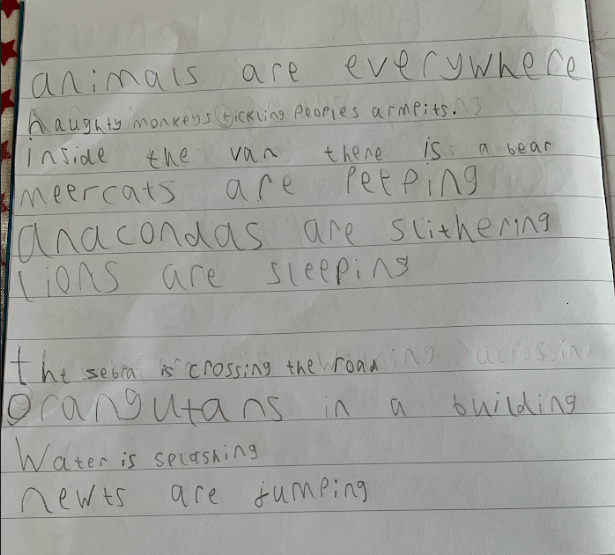 animals are everywhere
naughty monkeys tickling peoples armpits.
inside the van there is a bear
meercats are peeping
anacondas are slithering
lions are sleeping
the sebra is crossing the road
orangutans in a building
Water is splashing
newts are jumping